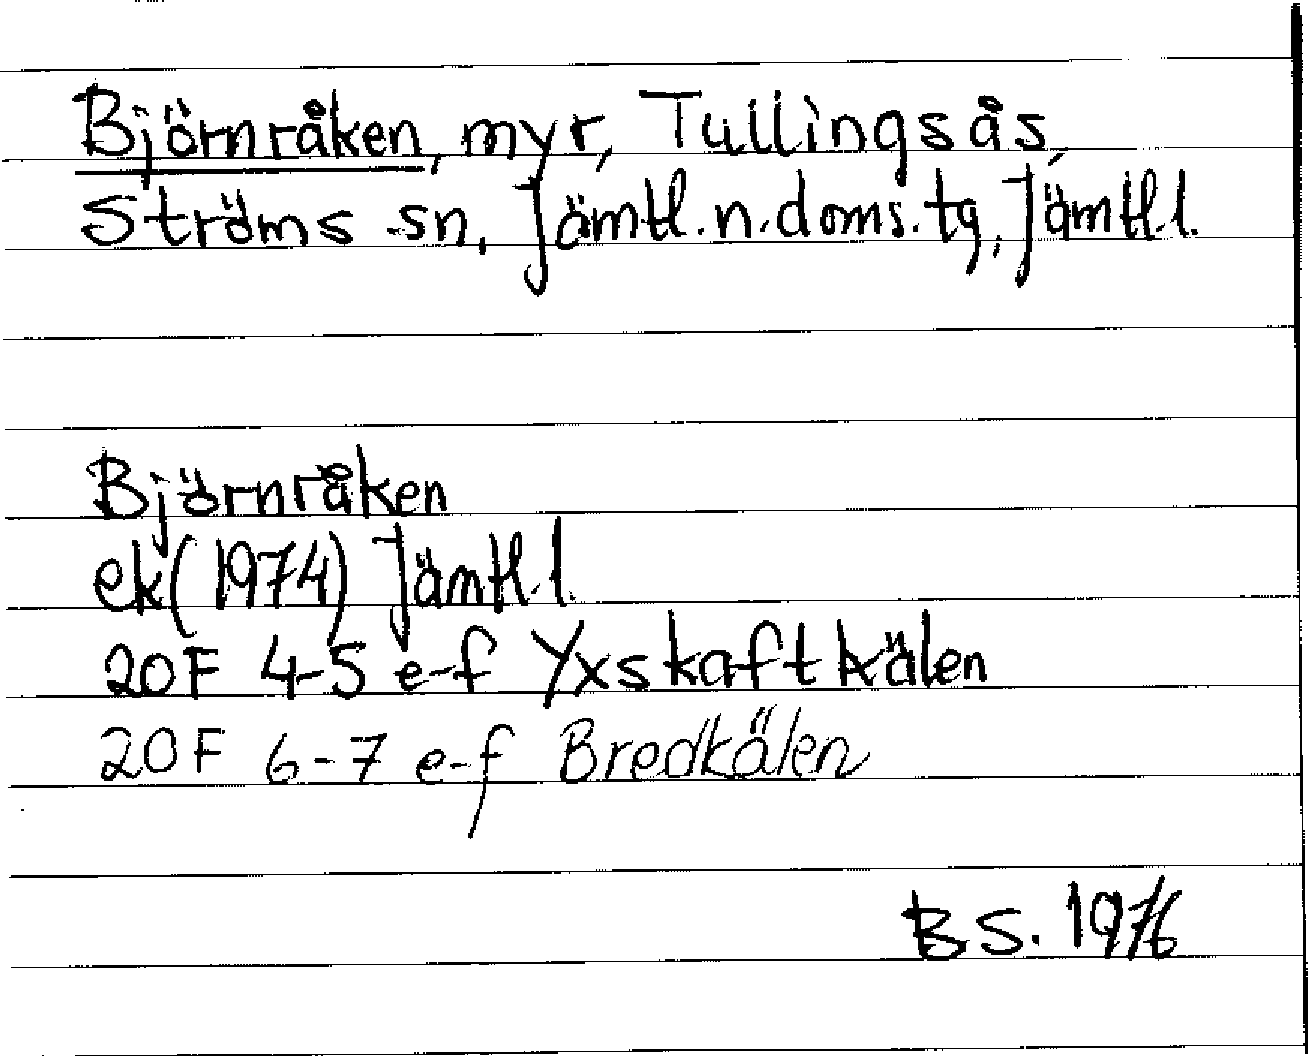 Björnråken, myr, Tullingsås,
Ströms sn, Jämtl.n.doms.tg, Jämtl.l.
Björnråken
ek(1974) Jämtl.l.
20F 4-5 e-f Yxskaftkälen
20F 6-7 e-f Bredkälen
BS. 1976